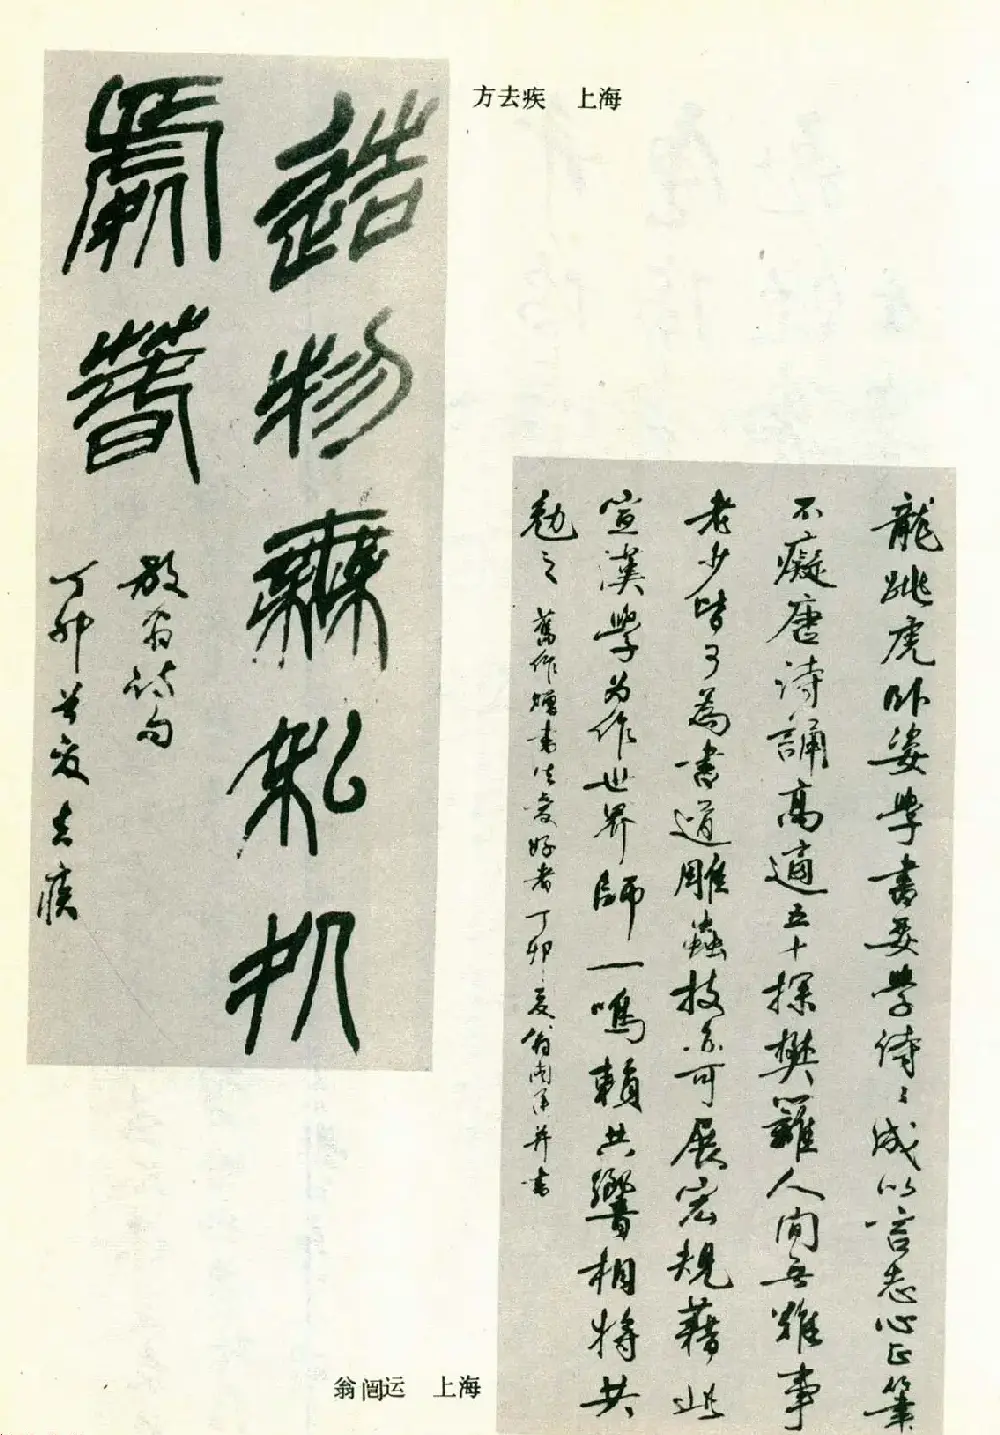 方去疾　上海
造物無私
放翁诗句
丁卯首夏去疾
龍跳虎卧姿學書要學诗々成以言志心正筆
不癡唐诗誦高適五十探樊籬人间無難事
老少皆可為書道雕蟲技亦可展宏規藉此
宣漢學为作世界師一鳴賴共響相将共
勉之 舊作贈書法愛好者丁卯夏翁闿运并書
翁闿运　上海